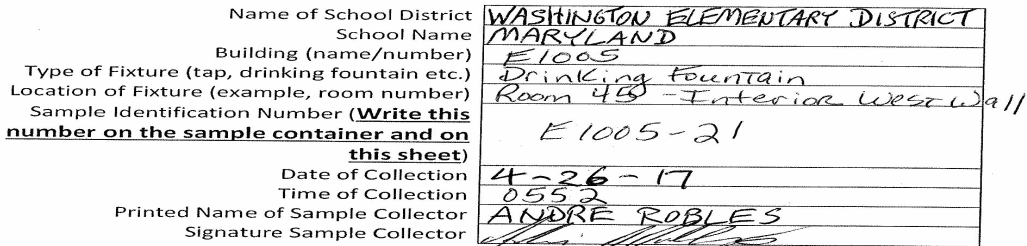 Name of School District WASHINGTON ELEMENTARY DISTRICT
School Name MARYLAND
Building (name/number) E1005
Type of Fixture (tap, drinking fountain etc.) Drinking Fountain
Location of Fixture (example, room number) Room 45 - Interior West Wall
Sample Identification Number (Write this
number on the sample container and on E1005-21
this sheet)
Date of Collection 4-26-17
Time of Collection 0552
Printed Name of Sample Collector ANDRE ROBLES
Signature Sample Collector